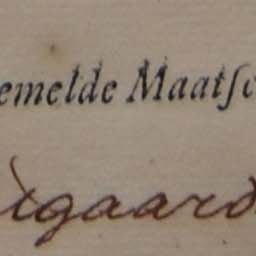 emelde Maatſc
igaard